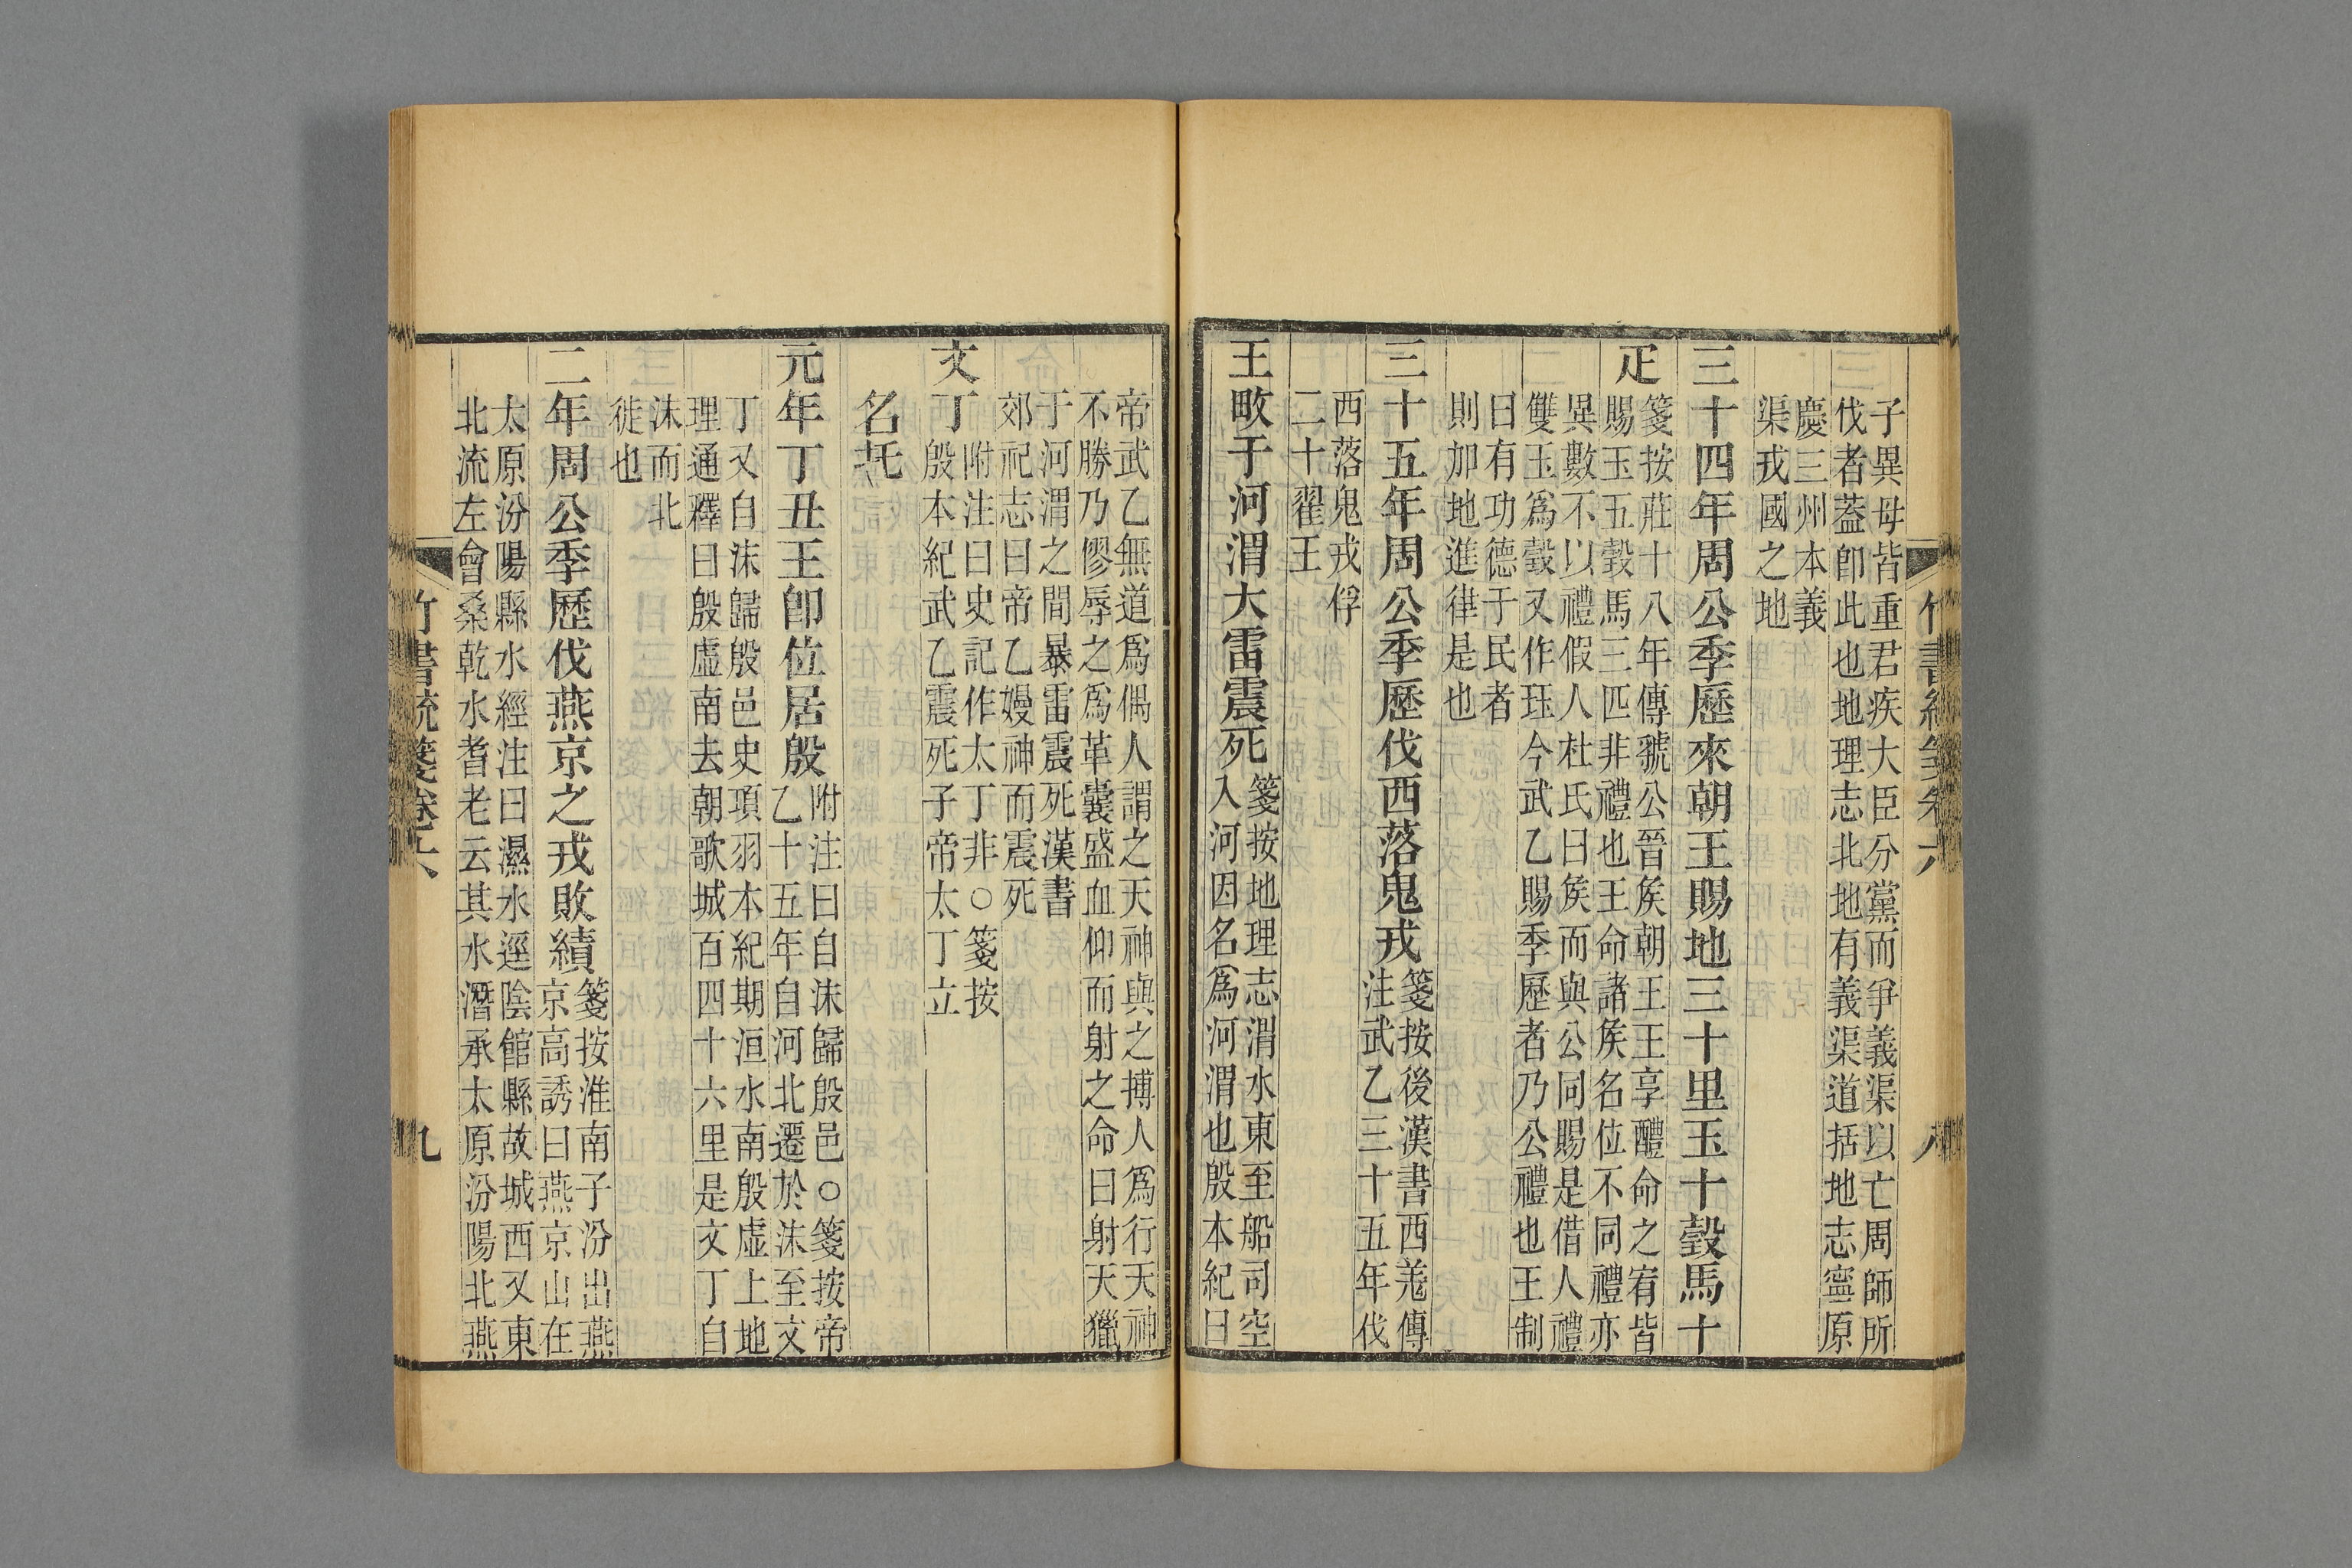 子異母皆重君疾大臣分黨而爭義渠以亡周師所
伐者蓋卽此也地理志北地有義渠道括地志寧原
慶三州本義
渠戎國之地
三十四年周公季歷來朝王賜地三十里玉十瑴馬十
疋
箋按莊十八年傳虢公晉矦朝王王享醴命之宥皆
賜玉五瑴馬三匹非禮也王命諸矦名位不同禮亦
異數不以禮假人杜氏曰矦而與公同賜是借人禮
雙玉爲瑴又作珏今武乙賜季歷者乃公禮也王制
曰有功德于民者
則加地進律是也
三十五年周公季歷伐西落鬼戎
箋按後漢書西羌傳
注武乙三十五年伐
西落鬼戎俘
二十翟王
王畋于河渭大雷震死
箋按地理志渭水東至船司空
入河因名爲河渭也殷本紀曰
竹書統箋卷六
八
帝武乙無道爲偶人謂之天神與之搏人爲行天神
不勝乃僇辱之爲革囊盛血仰而射之命曰射天獵
于河渭之間暴雷震死漢書
郊祀志曰帝乙嫚神而震死
文丁
附注曰史記作太丁非○箋按
殷本紀武乙震死子帝太丁立
名托
元年丁丑王卽位居殷
附注曰自沬歸殷邑○箋按帝
乙十五年自河北遷於沬至文
丁又自沬歸殷邑史項羽本紀期洹水南殷虛上地
理通釋曰殷虛南去朝歌城百四十六里是文丁自
沬而北
徙也
二年周公季歷伐燕京之戎敗績
箋按淮南子汾出燕
京高誘曰燕京山在
太原汾陽縣水經注曰濕水逕陰館縣故城西又東
北流左會桑乾水耆老云其水潛承太原汾陽北燕
竹書統箋卷六
九